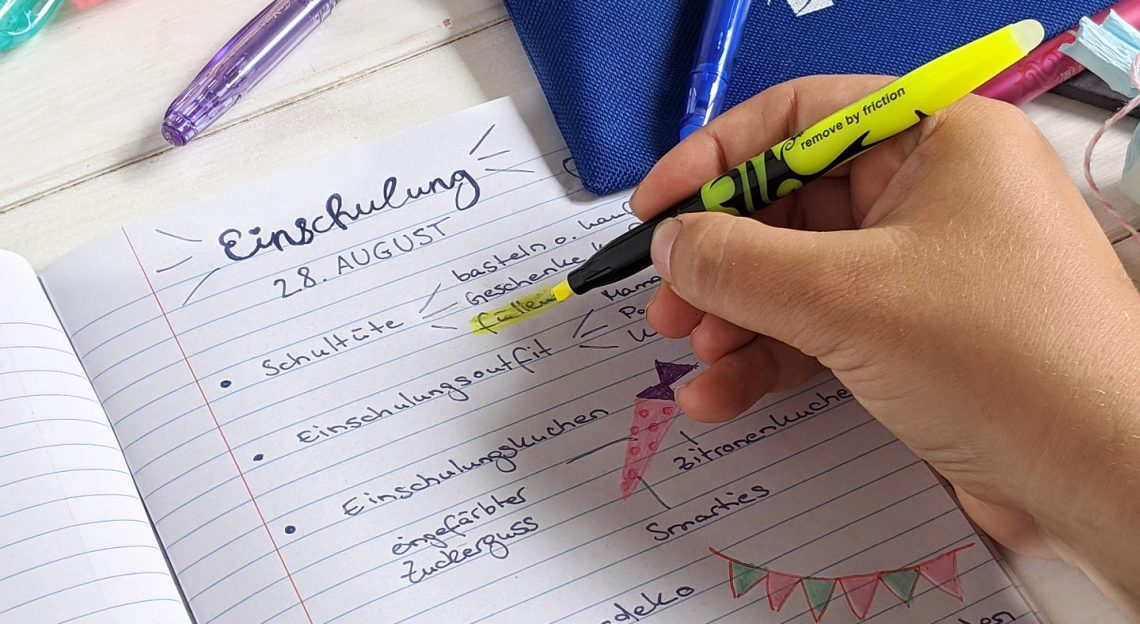 Einschulung
28. AUGUST
basteln o.
Schultüte
Geschenke
füllen
Mama
Einschulungsoutfit
Einschulungskuchen
Zitronenkuchen
eingefärbter
Zuckerguss
Smarties
remove by friction